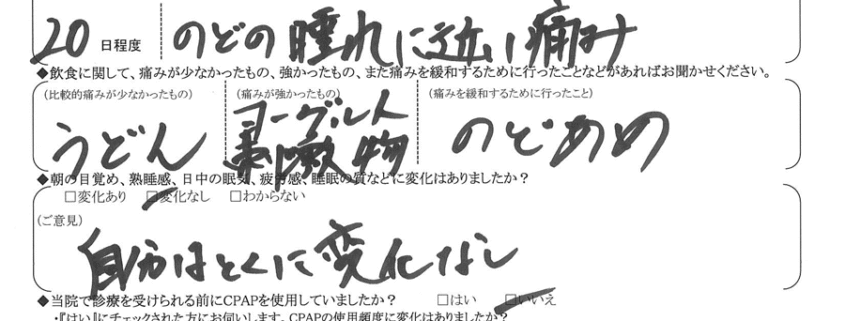 20 日程度 のどの腫れに近い痛み
◆飲食に関して、痛みが少なかったもの、強かったもの、また痛みを緩和するために行ったことなどがあればお聞かせください。
(比較的痛みが少なかったもの) (痛みが強かったもの) (痛みを緩和するために行ったこと)
うどん ヨーグルト 刺激物 のどあめ
◆朝の目覚め、熟睡感、日中の眠気、疲労感、睡眠の質などに変化はありましたか？
□変化あり □変化なし □わからない
(ご意見)
自分はとくに変化なし
◆当院で診療を受けられる前にCPAPを使用していましたか？ □はい □いいえ
・『はい』にチェックされた方にお伺いします。CPAPの使用頻度に変化はありましたか？